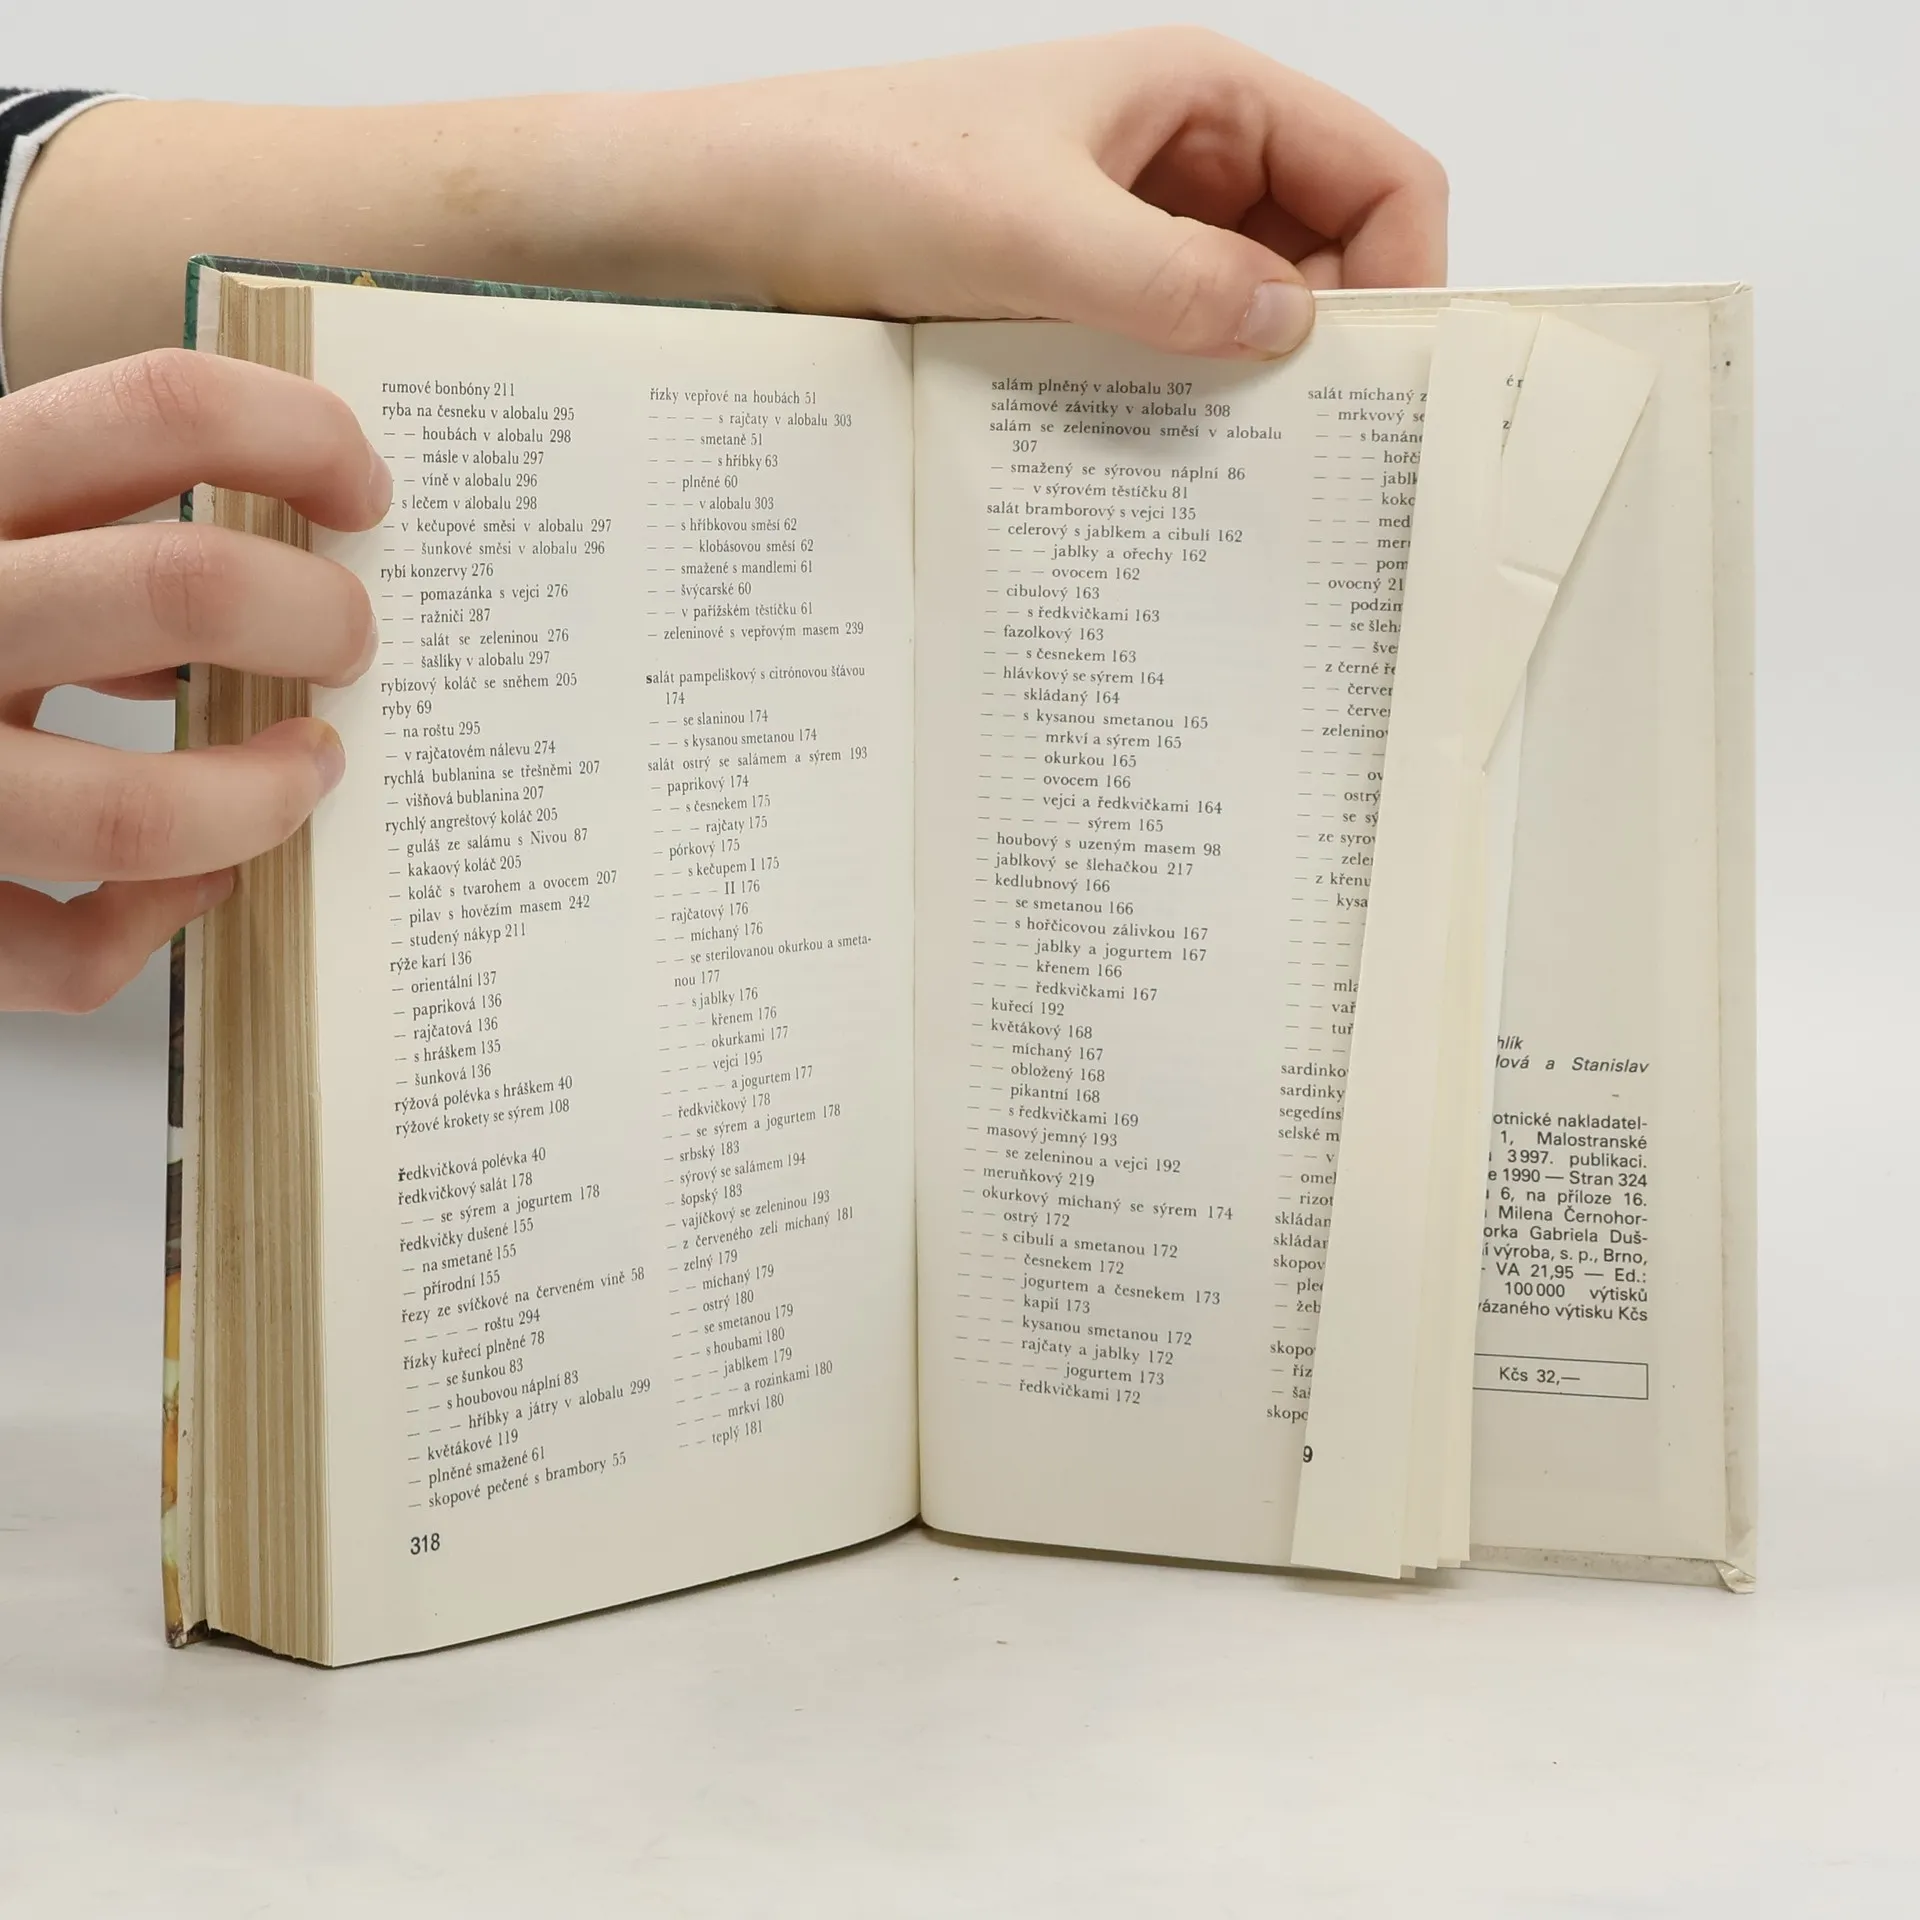 rumové bonbóny 211
ryba na česneku v alobalu 295
— — houbách v alobalu 298
— — másle v alobalu 297
— víně v alobalu 296
— s lečem v alobalu 298
— v kečupové směsi v alobalu 297
— — šunkové směsi v alobalu 296
rybí konzervy 276
— — pomazánka s vejci 276
— — ražniči 287
— — salát se zeleninou 276
— — šašlíky v alobalu 297
rybízový koláč se sněhem 205
ryby 69
— na roštu 295
— v rajčatovém nálevu 274
rychlá bublanina se třešněmi 207
— višňová bublanina 207
rychlý angreštový koláč 205
— guláš ze salámu s Nivou 87
— kakaový koláč 205
— koláč s tvarohem a ovocem 207
— pilav s hovězím masem 242
— studený nákyp 211
rýže karí 136
— orientální 137
— papriková 136
— rajčatová 136
— s hráškem 135
— šunková 136
rýžová polévka s hráškem 40
rýžové krokety se sýrem 108
ředkvičková polévka 40
ředkvičkový salát 178
— — se sýrem a jogurtem 178
ředkvičky dušené 155
— na smetaně 155
— přírodní 155
řezy ze svíčkové na červeném víně 58
— — — — roštu 294
řízky kuřecí plněné 78
— — se šunkou 83
— — s houbovou náplní 83
— — — hříbky a játry v alobalu 299
— květákové 119
— plněné smažené 61
— skopové pečené s brambory 55
318
řízky vepřové na houbách 51
— — — — s rajčaty v alobalu 303
— — — smetaně 51
— — — — s hříbky 63
— — plněné 60
— — — v alobalu 303
— — s hříbkovou směsí 62
— — — klobásovou směsí 62
— — smažené s mandlemi 61
— — švýcarské 60
— — v pařížském těstíčku 61
— zeleninové s vepřovým masem 239
salát pampeliškový s citrónovou šťávou
174
— — se slaninou 174
— — s kysanou smetanou 174
salát ostrý se salámem a sýrem 193
— paprikový 174
— — s česnekem 175
— — — rajčaty 175
— pórkový 175
— — s kečupem I 175
— — — — II 176
— rajčatový 176
— — míchaný 176
— — se sterilovanou okurkou a smeta-
nou 177
— — s jablky 176
— — — křenem 176
— — — okurkami 177
— — — vejci 195
— — — — a jogurtem 177
— ředkvičkový 178
— — se sýrem a jogurtem 178
— srbský 183
— sýrový se salámem 194
— šopský 183
— vajíčkový se zeleninou 193
— z červeného zelí míchaný 181
— zelný 179
— — míchaný 179
— — ostrý 180
— — se smetanou 179
— — s houbami 180
— — — jablkem 179
— — — — a rozinkami 180
— — — mrkví 180
— — teplý 181
salám plněný v alobalu 307
salámové závitky v alobalu 308
salám se zeleninovou směsí v alobalu
307
— smažený se sýrovou náplní 86
— — v sýrovém těstíčku 81
salát bramborový s vejci 135
— celerový s jablkem a cibulí 162
— — — jablky a ořechy 162
— — — ovocem 162
— cibulový 163
— — s ředkvičkami 163
— fazolkový 163
— — s česnekem 163
— hlávkový se sýrem 164
— — skládaný 164
— — s kysanou smetanou 165
— — — mrkví a sýrem 165
— — — okurkou 165
— — — ovocem 166
— — — vejci a ředkvičkami 164
— — — — — sýrem 165
— houbový s uzeným masem 98
— jablkový se šlehačkou 217
— kedlubnový 166
— — se smetanou 166
— — s hořčicovou zálivkou 167
— — — jablky a jogurtem 167
— — — křenem 166
— — — ředkvičkami 167
— kuřecí 192
— květákový 168
— — míchaný 167
— — obložený 168
— — pikantní 168
— — s ředkvičkami 169
— masový jemný 193
— — se zeleninou a vejci 192
— meruňkový 219
— okurkový míchaný se sýrem 174
— — ostrý 172
— — s cibulí a smetanou 172
— — — česnekem 172
— — — jogurtem a česnekem 173
— — — kapií 173
— — — kysanou smetanou 172
— — — rajčaty a jablky 172
— — — — — jogurtem 173
— — — ředkvičkami 172
salát míchaný z
— mrkvový se
— — s banán
— — — hořči
— — — jablk
— — — koko
— — — med
— — — mer
— — — pom
— ovocný 21
— — podzim
— — se šleh
— — — šve
— z černé ře
— — červen
— — červe
— zelenino
— — — —
— — — ov
— — ostrý
— — se sý
— ze syrov
— — zele
— z křenu
— — kysa
— — — mla
— — vař
— — tuř
sardinko
sardinky
segedíns
selské m
— — v
— omel
— rizot
skládan
skládan
skopov
— plec
— žeb
skopo
— říz
— šaš
skopo
9
hlík
lová a Stanislav
otnické nakladatel-
1, Malostranské
3997. publikaci.
e 1990 — Stran 324
6, na příloze 16.
Milena Černohor-
orka Gabriela Duš-
í výroba, s. p., Brno,
VA 21,95 — Ed.:
100 000 výtisků
ázaného výtisku Kčs
Kčs 32,—